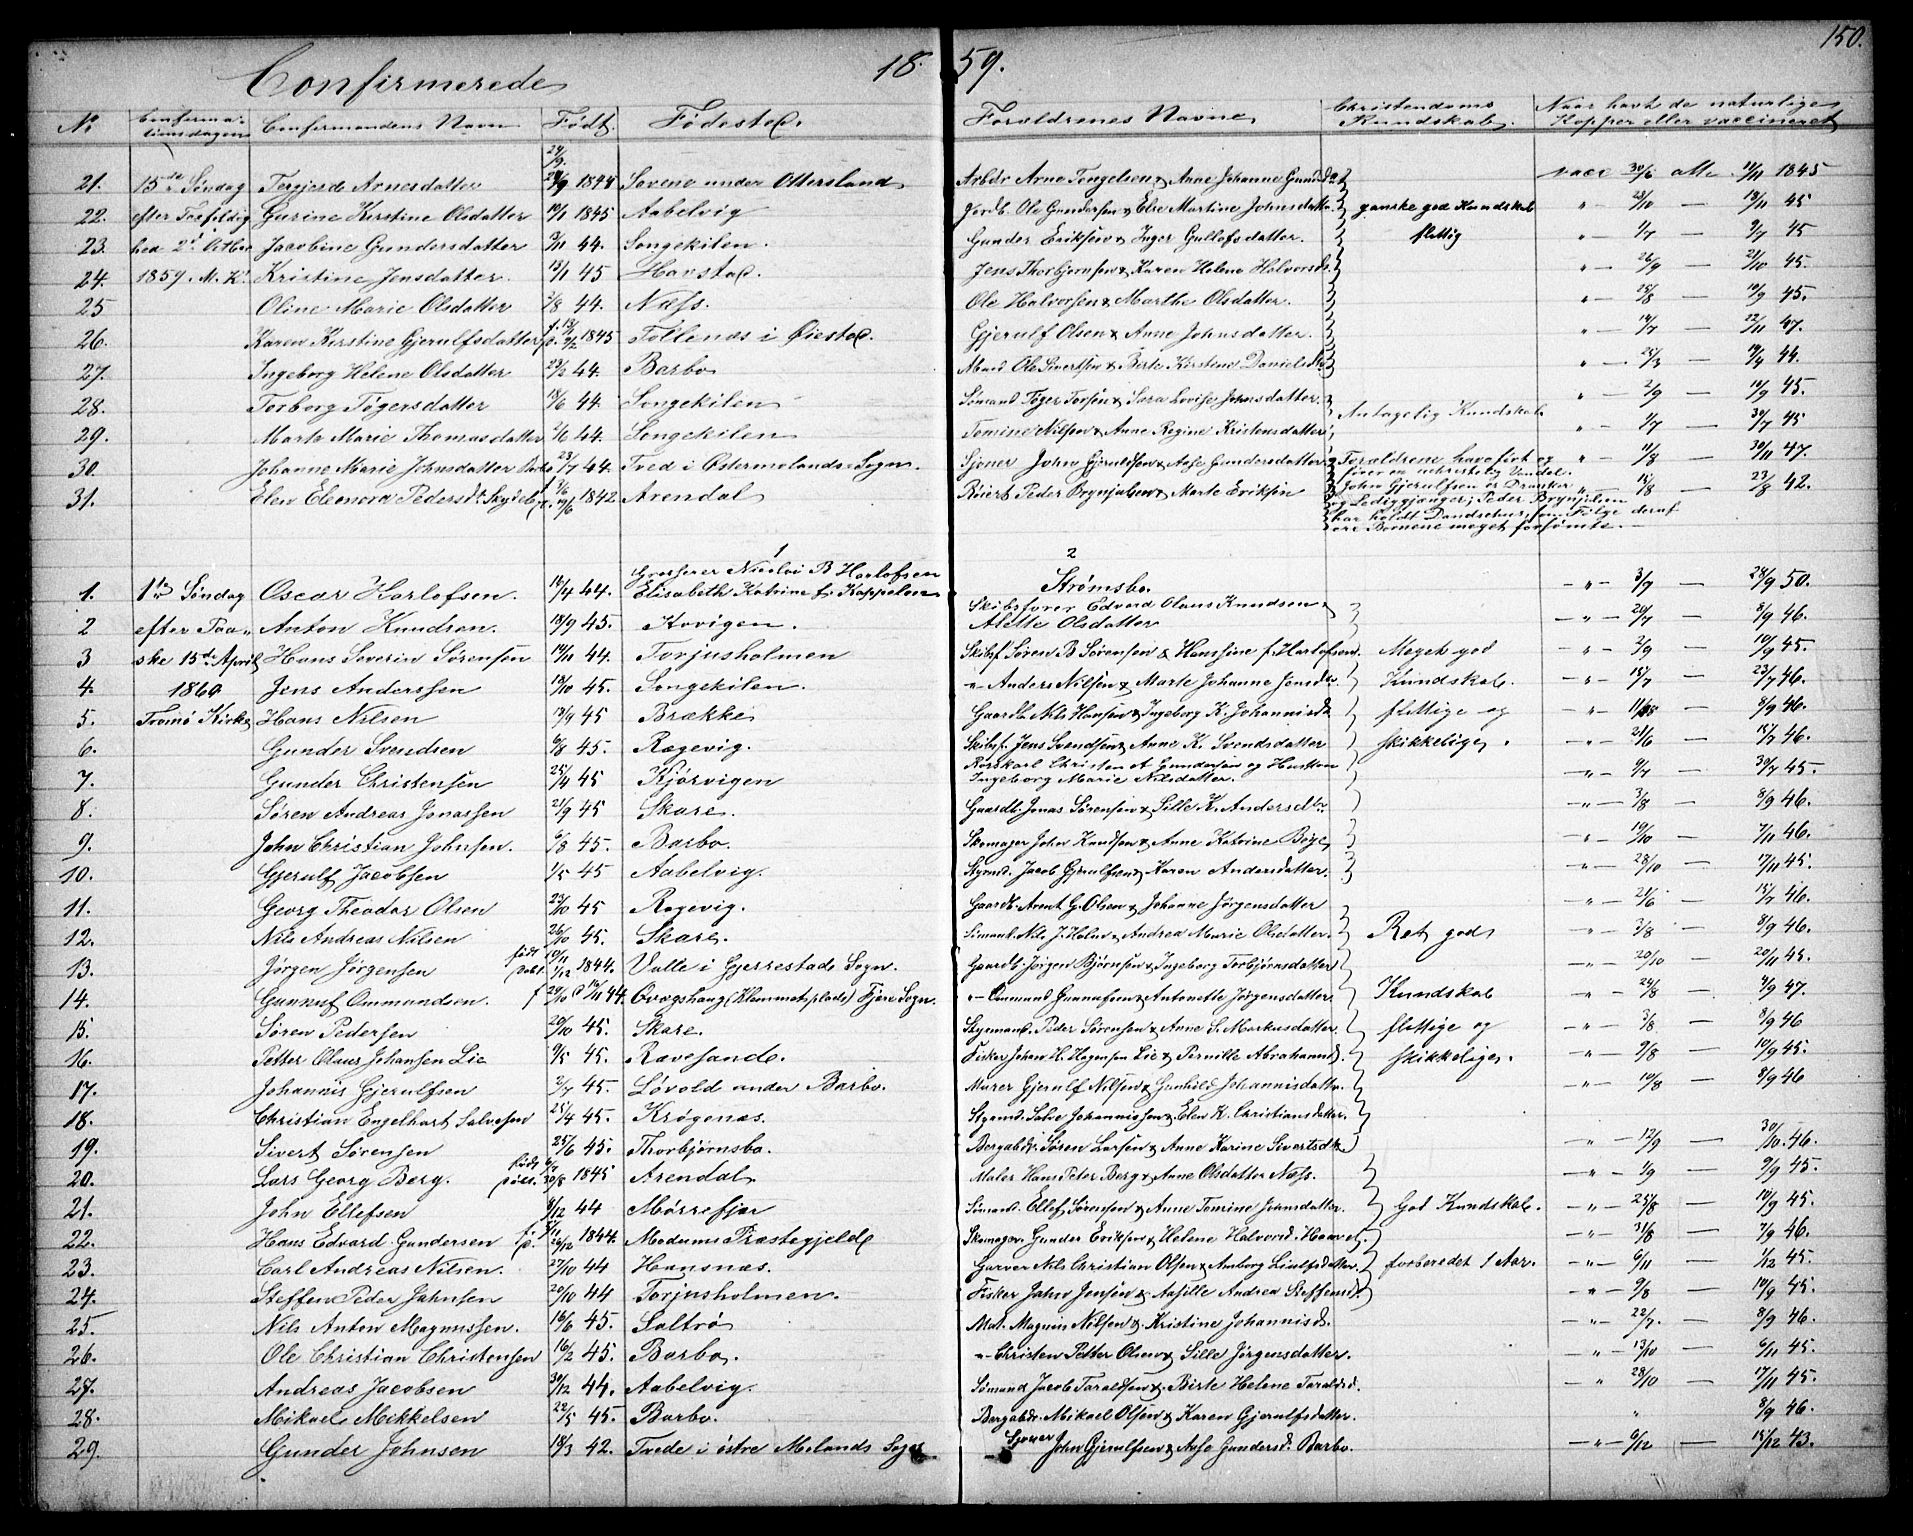 150.
Confirmerede 18 59.
No Confirmationsdagen Confirmandens Navn Født. Fødested. Forældrenes Navne Christendoms Kundskab. Naar havt de naturlige Kopper eller vaccineret
21. 15de Søndag Arnesdatter 24/9 1844 under Ottersland Arbdr Arne & Anne Johanne vacc 30/6 atte. 11/11 1845
22. efter Gurine Kirstine Olsdatter 10/1 1845 Aabelvig Jordb. Ole Gundersen & Else Martine Johnsdatter ganske god Kundskab " — 23/10 — 13/11 45
23. Jacobine Gundersdatter 3/11 44. Songekilen. Gunder Eriksen & Inger Gullofsdatter. flittig " — 1/7 — 9/7 45
24. 1859. M. K. Kristine Jensdatter. 13/1 45 Havstad. Jens Thorbjørnsen & Karen Helene " — 26/9 — 21/10 45.
25 Oline Marie Olsdatter 3/8 44. Næss. Ole Halvorsen & Marthe Olsdatter. " — 25/8 — 10/9 45.
26. Karen Kirstine Gjerulfsdatter 1845 i Øiestad. Gjerulf Olsen & Anne Johnsdatter. " — 14/7 — 22/11 47.
27. Ingeborg Helene Olsdatter 23/2 44. Barbo Ole Sivertsen & Birte Kirstine " — 25/3 — 19/4 44.
28. Torborg Tøgersdatter 18/6 44. Songekilen Sømand Tøger & Sara Lovise Johnsdatter. " — 2/9 — 10/9 45.
29. Marte Marie Thomasdatter 2/6 44. Songekilen Nilsen & Anne Regine Kristensdatter Antagelig Kundskab " — 1/7 — 30/7 45
30. Johanne Marie Johnsdatter 23/7 44. Tved i Ostermolands Sogn. Sjouer John Gjerulfsen & Aase Gundersdatter Forældrene have ført og " — 11/8 — 30/11 47.
fører en uchristelig Vandel.
31. Elen Elenora 1842 Arendal Peder Brynjulsen & Marte Eriksen John Gjerulfsen er Dranker " — 15/8 — 23/8 42.
og Lediggjænger; Peder Brynjulsen
har holdt Dandsehus, som Følge deraf
ere Børnene meget forsømte.
1 2
Grosserer Nicolai B Herlofsen
1. 1ste Søndag Oscar Herlofsen. 12/4 44. Elisabeth Katrine f. Koppelen Strømsbo. — " — 3/9 — 28/9 50.
Skibsfører Edvard Olaus Knudsen
2 efter Paa- Anton Knudsen. 18/9 45. Kovigen. Alette Olsdatter — " — 20/7 — 8/9 46.
3 ske 15de April Hans Severin Sørensen 14/11 44. Torjusholmen Skibsf. Søren B Sørensen & Hansine f. Herlofsen Meget god " — 2/9 — 10/9 45.
4. 1860 Jens Anderssen 18/10 45. Songekilen. " Anders Nilsen & Marte Johanne Kundskab. " — 18/7 — 23/7 46.
5. Tromø Kirke Hans Nilsen 13/9 45 Brække Gaardb. Nils Hansen & Ingeborg K. Johannisd. flittige og " — 11/8 — 8/9 46.
6. Gunder Svendsen 6/8 45. Ragevig. Skibsf. Jens Svendsen & Anne K. Svendsdatter skikkelige. " — 21/6 — 15/7 46.
Christen og Hustru
7. Gunder Christensen 25/4 45 Kjørvigen Ingeborg Marie Nilsdatter. " — 9/7 — 30/7 45.
8. Søren Andreas Jonassen 21/9 45 Skare. Gaardb. Jonas Sørensen & Sille K. " — 3/8 — 8/9 46.
9. John Christian Johnsen. 6/8 45. Barbo. Skomager John Knudsen & Anne Katrine " — 19/10 — 7/11 46.
10. Gjerulf Jacobsen 1/5 45 Aabelvig. Jacob Gjerulfsen & Karen Andersdatter. " — 28/10 — 17/11 45.
11. Georg Theodor Olsen 23/10 45 Ragevig. Gaardb. Arent G. Olsen & Johanne Jørgensdatter " — 21/6 — 15/7 46.
12. Nils Andreas Nilsen 26/10 45. Skare. Nils J. & Andrea Marie Olsdatter. Ret god " — 3/8 — 8/9 46.
13. Jørgen Jørgensen født 10/11 døbt 1/12 1844. Valle i Gjerrestads Sogn. Gaardb. Jørgen Bjørnsen & Ingeborg Torbjørnsdatter " — 20/10 — 20/11 45.
14. Ommundsen. f 29/10 44. Fjære Sogn. " Ommund & Antonette Jørgensdatter. Kundskab " — 24/8 — 4/9 47.
15. Søren Pedersen 20/10 45. Skare. Styrmand. Peder Sørensen & Anne S. Markusdatter. flittige og " — 3/8 — 8/9 46
16. Petter Olaus Johansen Lie 9/5 45. Ravesande. Fisker Johan H. Lie & Pernille skikkelige. " — 9/8 — 10/9 45.
17. Johannis Gjerulfsen 2/7 45. Løvold under Barbo. Murer Gjerulf Nilsen & Gunhild " — 10/8 — 8/9 46
18. Christian Engelhart Salvesen 25/4 45. Krøgenæs. Salve Johannissen & Elen K. Christiansdatter.
19. Sivert Sørensen 25/6 45. Thorbjørnsbo. Søren Larsen & Anne Karine " — 12/9 — 30/10. 46.
20. Lars Georg Berg. født døbt. 30/8 1845 Arendal Maler Hans Peter Berg & Anne Olsdatter Næss. — " — 1/9 — 9/9 45.
21. John Ellefsen 8/12 44 Mørrefjær Sømand. Ellef Sørensen & Anne Tomine Johnsdatter. God Kundskab. — " — 25/8 — 10/9 45.
22. Hans Edvard Gundersen 26/12 1844. Modums Præstegjeld Skomager Gunder Eriksen & Helene " — 31/8 — 7/9 46.
23. Carl Andreas Nilsen. 27/10 44 Hansnæs. Garver Nils Christian Olsen & Anborg forberedet 1 Aar. — " — 6/11 — 1/12 45.
24. Steffen Peder Johnsen 20/10 44 Torjusholmen. Fisker John Jensen & Andrea " — 9/8 — 10/9 45.
25. Nils Anton Magnussen. 16/6 45. Saltrø Mat. Magnus Nilsen & Kristine " — 22/7. — 8/9 46.
26. Ole Christian Christensen 16/2 45. Barbo. " Christen Petter Olsen & Sille Jørgensdatter. " — 13/10 — 6/11 45.
27. Andreas Jacobsen 30/12 44. Aabelvig. Sømand Jacob Taraldsen & Birte Helene Taraldsd. " — 28/10 — 17/11 45.
28. Mikael Mikkelsen 22/5 45. Barbo. Mikael Olsen & Karen Gjerulfsdatter. " 8/9 46.
29. Gunder Johnsen 18/3 42. Tvede i østre Molands Sogn Sjouer John Gjerulfsen & Aase Gundersd. Barbo. — " — 6/12 — 15/12 43.